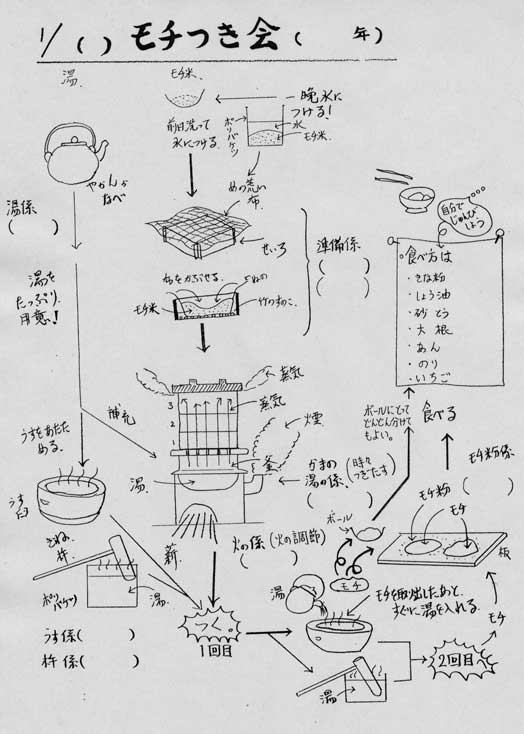 1/ ( ) モチつき会 ( 年)
湯
モチ米
一晩水に
つける!
水
モチ米
ポリバケツ
前日洗って
水につける
やかんか
なべ
湯係
( )
めの荒い
布
せいろ
準備係
( )
( )
布をかぶせる
モチ米
竹のすのこ
湯を
たっぷり
用意!
自分で
じゅんび
しよう
食べ方は
・きな粉
・しょう油
・砂とう
・大根
・あん
・のり
・いちご
蒸気
3
2
1
蒸気
煙
補充
釜
湯
かまの
湯の係
(時々
つぎたす)
( )
ボールにとって
どんどん分けて
もよい。
食べる
モチ粉係
( )
うすをあたた
める。
うす
臼
薪
火の係 (火の調節)
( )
ボール
モチ
モチ粉
モチ
板
きね
杵
ポリバケツ
湯
うす係( )
杵係( )
つく。
1回目
湯
モチを取出したあと、
すぐに湯を入れる
湯
モチ
2回目へ